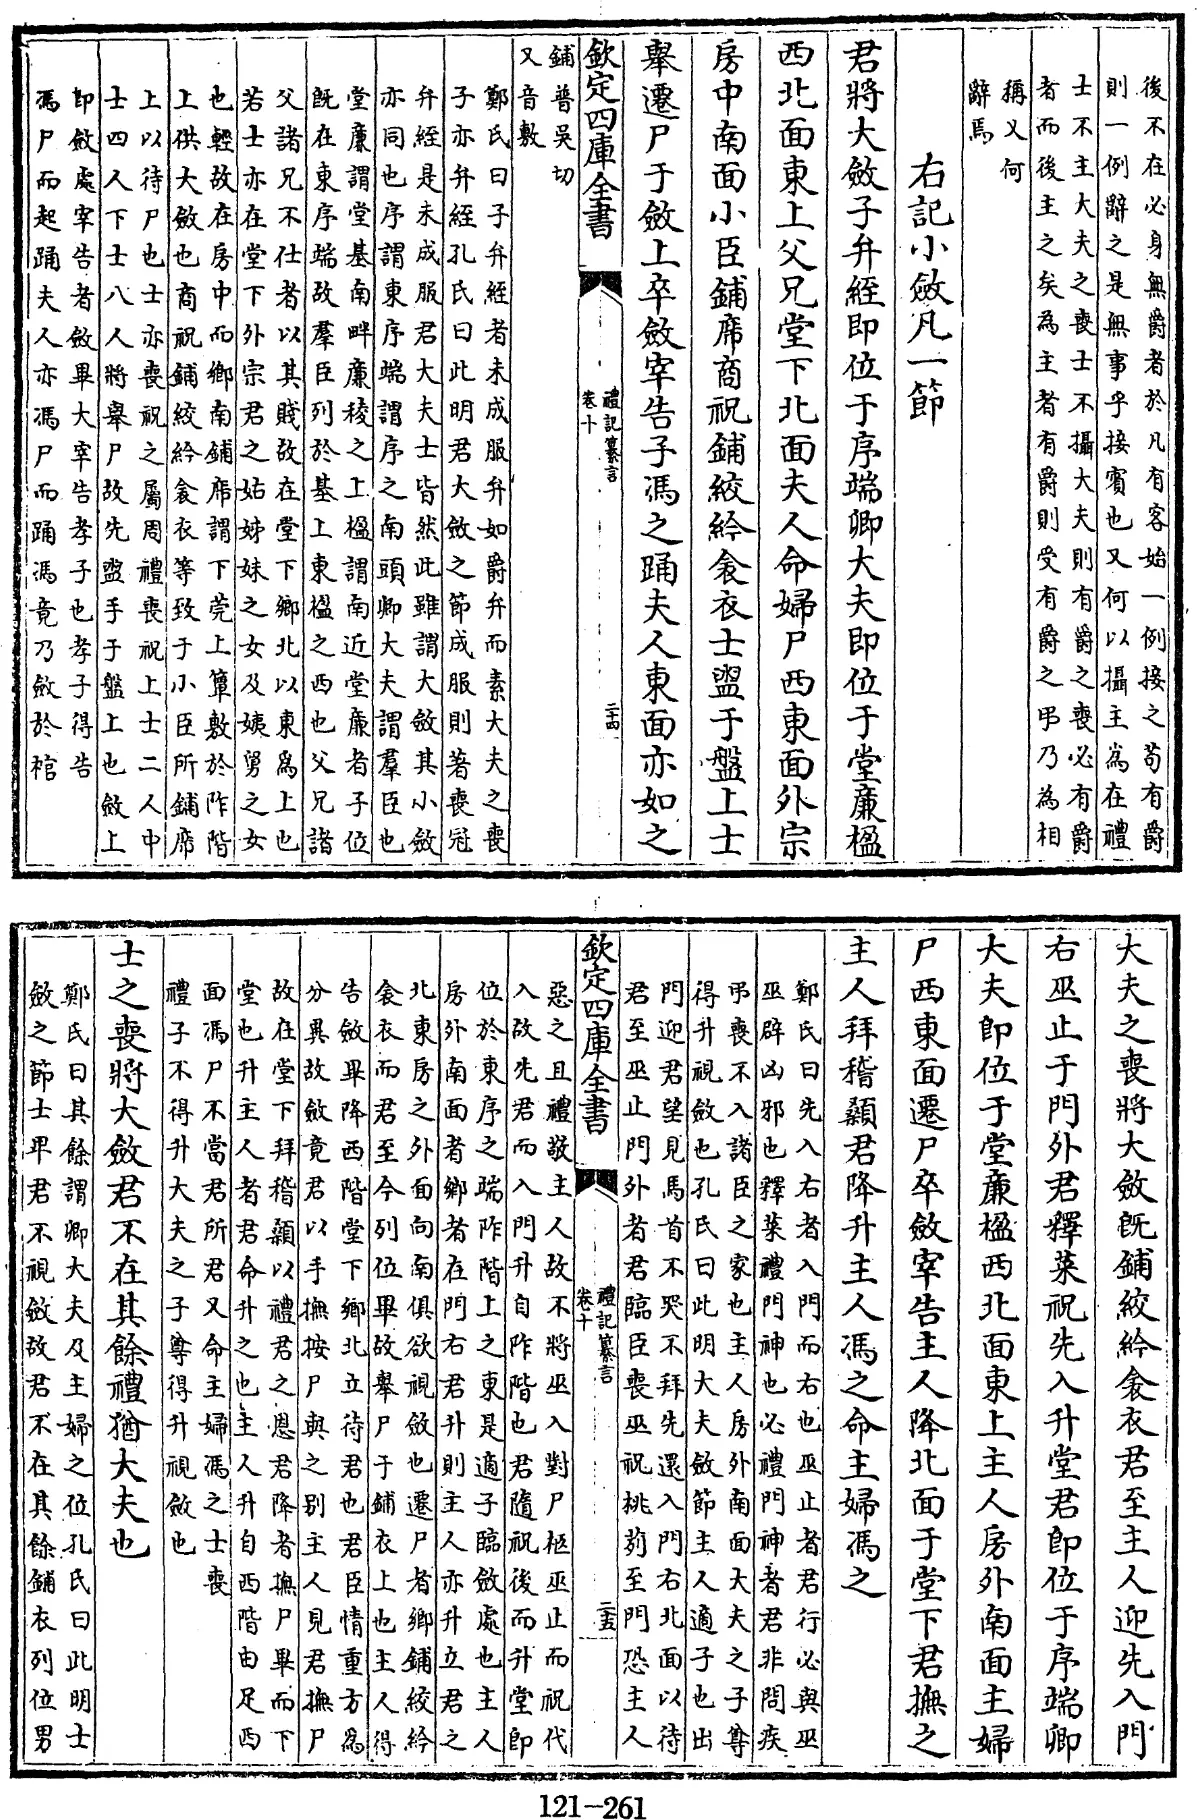 後不在必身無爵者於凡有客始一例接之茍有爵
則一例辭之是無事乎接賓也又何以攝主為在禮
士不主大夫之喪士不攝大夫則有爵之喪必有爵
者而後主之矣為主者有爵則受有爵之弔乃為相
稱又何
辭焉
右記小斂凡一節
君將大斂子弁絰即位于序端卿大夫即位于堂廉楹
西北面東上父兄堂下北面夫人命婦尸西東面外宗
房中南面小臣鋪席商祝鋪絞紟衾衣士盥于盤上士
舉遷尸于斂上卒斂宰告子馮之踊夫人東面亦如之
欽定四庫全書
禮記纂言
卷十
二十四
鋪普吳切
又音敷
鄭氏曰子弁絰者未成服弁如爵弁而素大夫之喪
子亦弁絰孔氏曰此明君大斂之節成服則著喪冠
弁絰是未成服君大夫士皆然此雖謂大斂其小斂
亦同也序謂東序端謂序之南頭卿大夫謂羣臣也
堂廉謂堂基南畔廉稜之上楹謂南近堂廉者子位
既在東序端故羣臣列於基上東楹之西也父兄諸
父諸兄不仕者以其賤故在堂下鄉北以東為上也
若士亦在堂下外宗君之姑姊妹之女及姨舅之女
也輕故在房中而鄉南鋪席謂下莞上簟敷於阼階
上供大斂也商祝鋪絞紟衾衣等致于小臣所鋪席
上以待尸也士亦喪祝之屬周禮喪祝上士二人中
士四人下士八人將舉尸故先盥手于盤上也斂上
即斂處宰告者斂畢大宰告孝子也孝子得告
馮尸而起踊夫人亦馮尸而踊馮竟乃斂於棺
大夫之喪將大斂既鋪絞紟衾衣君至主人迎先入門
右巫止于門外君釋菜祝先入升堂君即位于序端卿
大夫即位于堂廉楹西北面東上主人房外南面主婦
尸西東面遷尸卒斂宰告主人降北面于堂下君撫之
主人拜稽顙君降升主人馮之命主婦馮之
鄭氏曰先入右者入門而右也巫止者君行必與巫
巫辟凶邪也釋菜禮門神也必禮門神者君非問疾
弔喪不入諸臣之家也主人房外南面大夫之子尊
得升視斂也孔氏曰此明大夫斂節主人適子也出
門迎君望見馬首不哭不拜先還入門右北面以待
君至巫止門外者君臨臣喪巫祝桃茢至門恐主人
欽定四庫全書
禮記纂言
卷十
二十五
惡之且禮敬主人故不將巫入對尸柩巫止而祝代
入故先君而入門升自阼階也君隨祝後而升堂即
位於東序之端阼階上之東是適子臨斂處也主人
房外南面者鄉者在門右君升則主人亦升立君之
北東房之外面向南俱欲視斂也遷尸者鄉鋪絞紟
衾衣而君至今列位畢故舉尸于鋪衣上也主人得
告斂畢降西階堂下鄉北立待君也君臣情重方為
分異故斂竟君以手撫按尸與之别主人見君撫尸
故在堂下拜稽顙以禮君之恩君降者撫尸畢而下
堂也升主人者君命升之也主人升自西階由足西
面馮尸不當君所君又命主婦馮之士喪
禮子不得升大夫之子尊得升視斂也
士之喪將大斂君不在其餘禮猶大夫也
鄭氏曰其餘謂卿大夫及主婦之位孔氏曰此明士
斂之節士卑君不視斂故君不在其餘鋪衣列位男
121-261